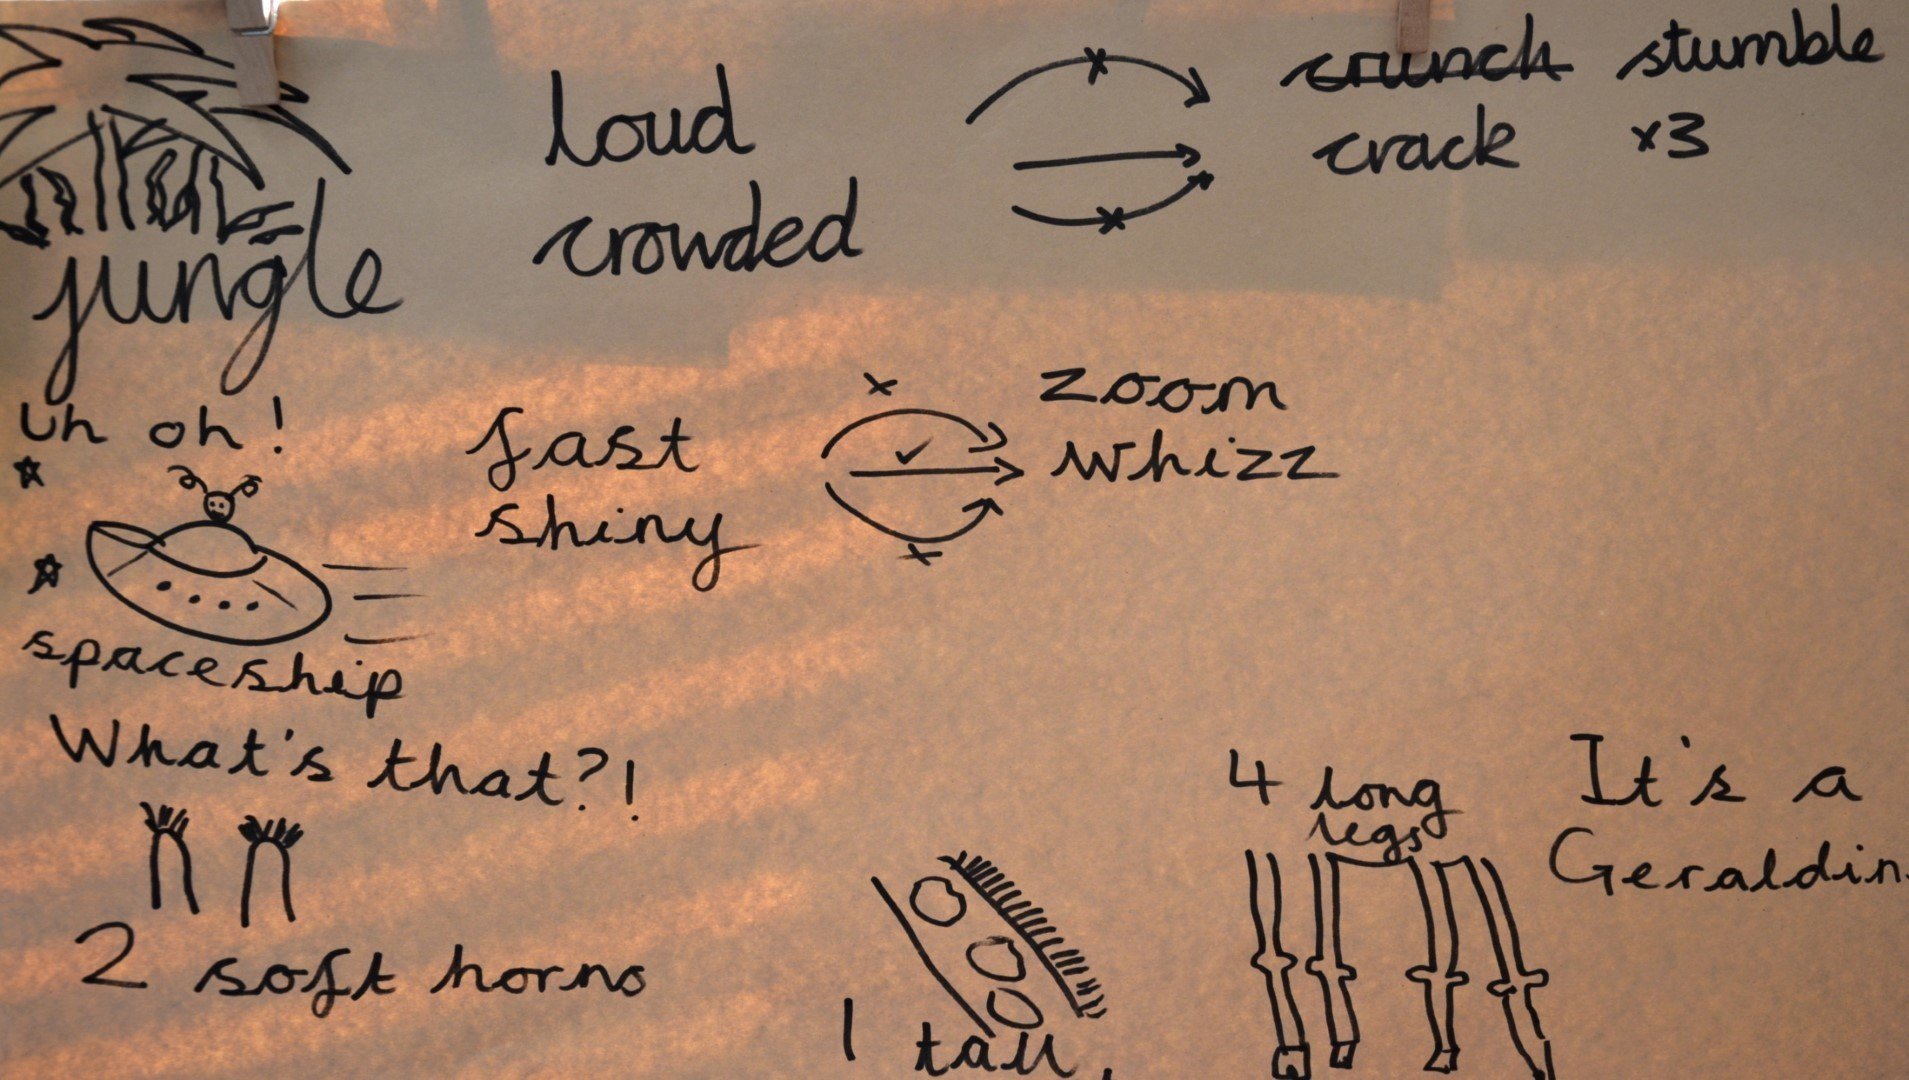 loud
crowded
crunch stumble
crack x3
jungle
uh oh!
fast
shiny
zoom
whizz
spaceship
What's that?!
2 soft horns
1 tall
4 long
legs
It's a
Geraldin